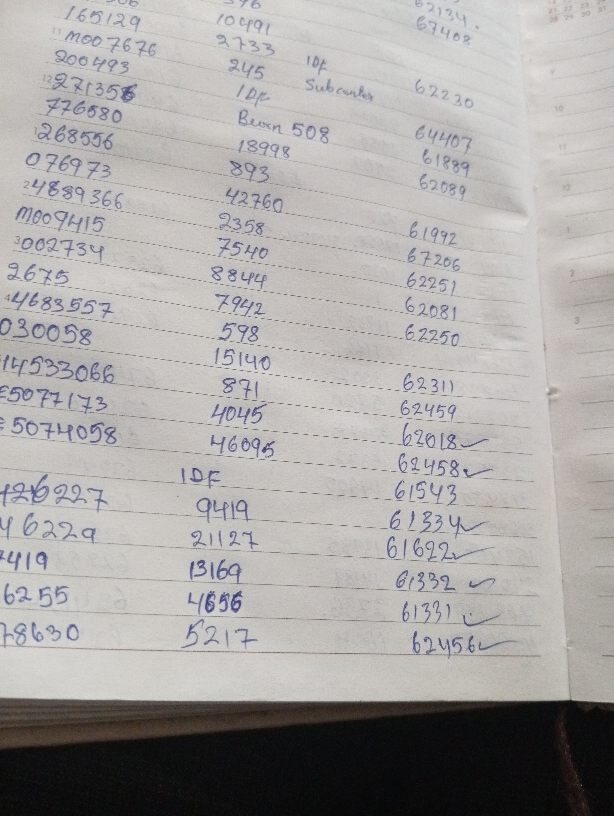 62134.
165129 10491 67408
M007676 2733 IDF
200493 245 Subcenter 62230
271356 IDF
776580 Beorn 508 64407
268556 18998 61889
076973 893 62089
4889366 42760
M009415 2358 61992
002734 7540 67206
2675 8844 62251
4683557 7942 62081
030058 598 62250
14533066 15140
5077173 871 62311
5074058 4045 62459
46095 62018 ✓
IDF 62458 ✓
426227 9419 61543
46229 21127 61334 ✓
7419 13169 61622 ✓
6255 4656 61332 ✓
78630 5217 61331 ✓
62456 ✓